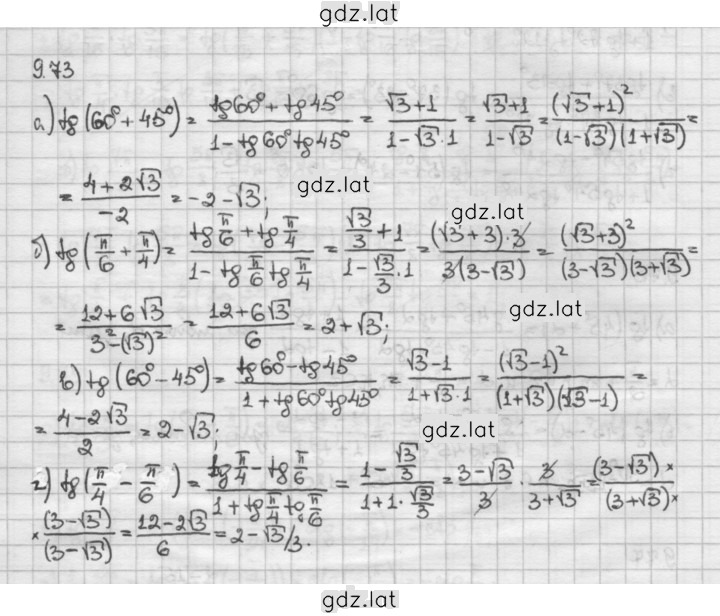 gdz.lat
9.73
а) tg(60° + 45°) = (tg60° + tg45°)/(1 - tg60° tg45°) = (√3 + 1)/(1 - √3 · 1) = (√3 + 1)/(1 - √3) = (√3 + 1)²/((1 - √3)(1 + √3)) =
= (4 + 2√3)/(-2) = -2 - √3;
gdz.lat
gdz.lat
б) tg(π/6 + π/4) = (tg π/6 + tg π/4)/(1 - tg π/6 tg π/4) = (√3/3 + 1)/(1 - √3/3 · 1) = ((√3 + 3) · 3)/(3(3 - √3)) = (√3 + 3)²/((3 - √3)(3 + √3)) =
= (12 + 6√3)/(3² - (√3)²) = (12 + 6√3)/6 = 2 + √3;
gdz.lat
в) tg(60° - 45°) = (tg60° - tg45°)/(1 + tg60° tg45°) = (√3 - 1)/(1 + √3 · 1) = (√3 - 1)²/((1 + √3)(√3 - 1)) =
= (4 - 2√3)/2 = 2 - √3;
gdz.lat
г) tg(π/4 - π/6) = (tg π/4 - tg π/6)/(1 + tg π/4 tg π/6) = (1 - √3/3)/(1 + 1 · √3/3) = (3 - √3)/3 · 3/(3 + √3) = (3 - √3)/(3 + √3) ×
× (3 - √3)/(3 - √3) = (12 - 2√3)/6 = 2 - √3/3.
gdz.lat